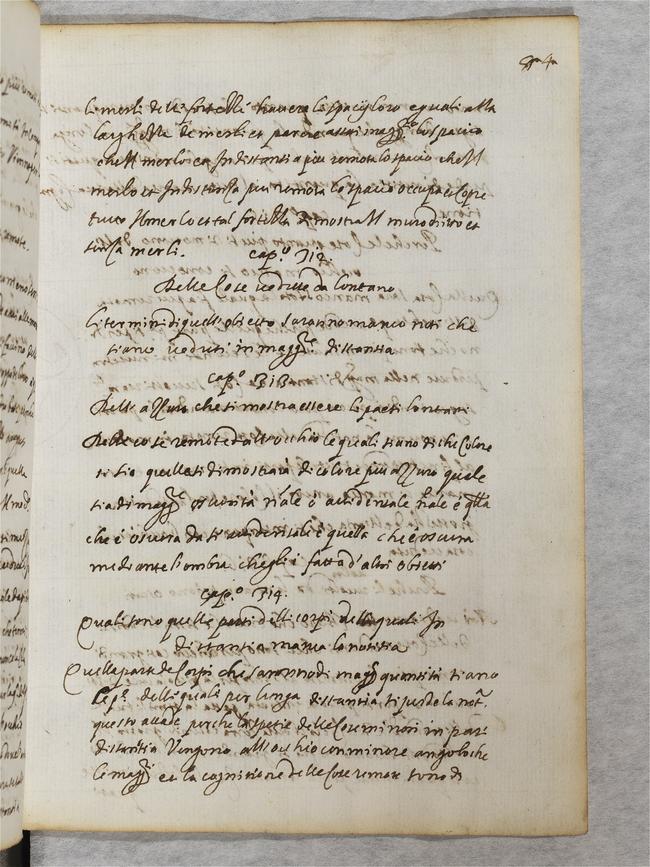 li merli delle fortezze havere li spacij loro eguali alla
larghezza de merli et parere assai magg.re lo spacio
che il merlo et in distantia piu remota lo spacio che il
merlo et in distanza piu remota lo spacio occupa et copre
tutto il merlo et tal fortezza dimostra il muro diritto et
senza merli.
cap.o 312.
Delle cose vedute da lontano
li termini di quell'obietto saranno manco noti che
siano veduti in magg.re distantia
cap.o 313
Dell'azzuro che si mostra essere li paesi lontani
Delle cose remote dall'occhio le quali siano di che colore
si sia quella si dimostrara di colore piu azzuro quale
sia di magg.re oscurità n'ale ò accidentale n'ale è q'lla
che è oscura da se accidentale è quella ch'è oscura
mediante l'ombra che gli è fatta d'altri obietti
cap.o 314.
Quali sono quelle parti delli corpi delli quali in
distantia manca la notitia
Quelle parte de Corpi che saranno di magg.r quantità siano
le p.e delli quali per lunga distantia si perde la not.a
questo accade perche la spetie delle Cose minori in pari
distantia Vengono all'occhio con minore angolo che
le magg.ri et la cognitione delle cose remote sono di